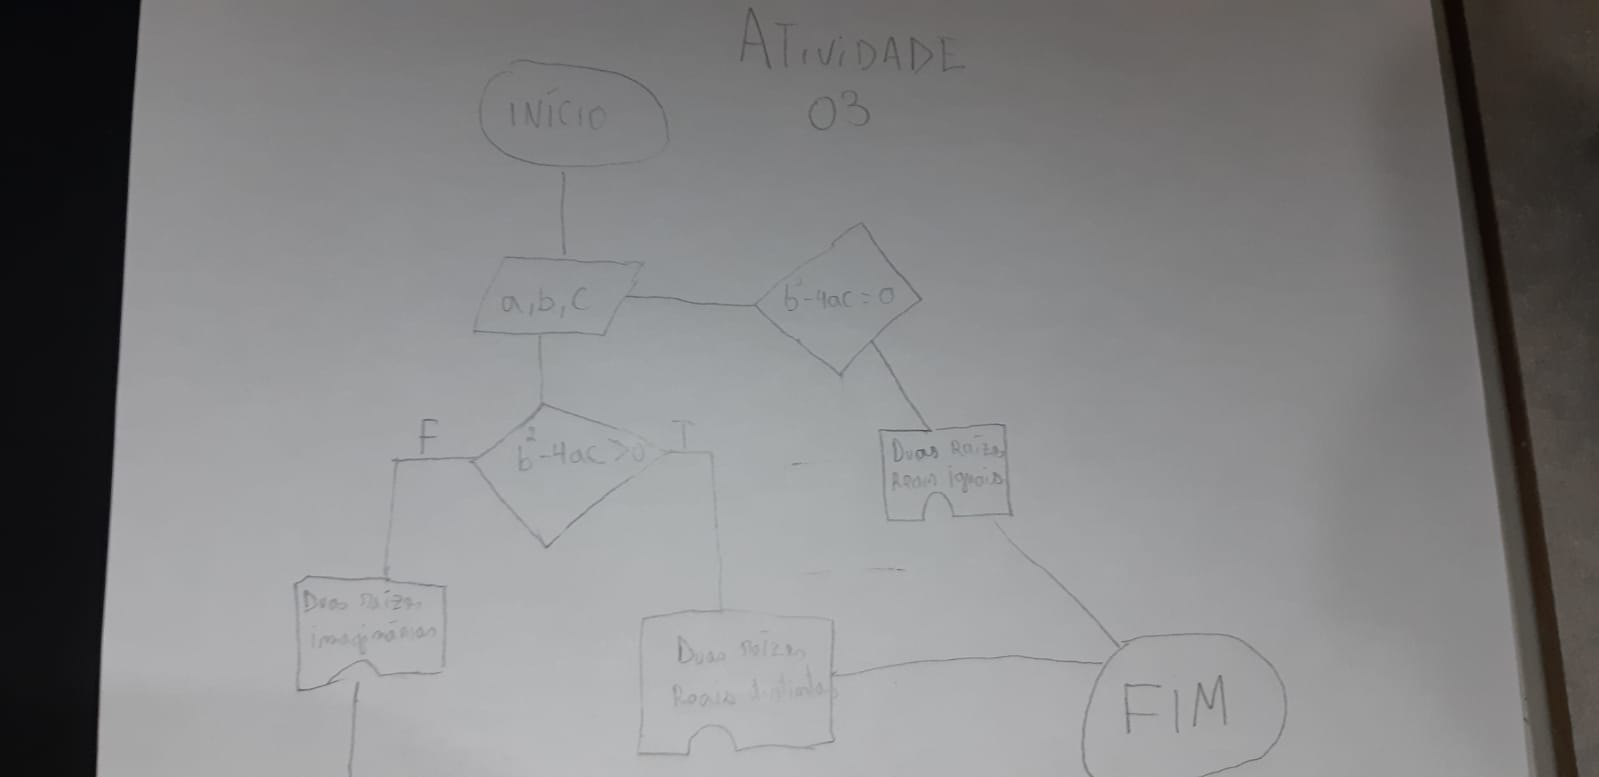 ATIVIDADE
03
INÍCIO
a,b,c
b²-4ac=0
F
b²-4ac>0
T
Duas Raízes
Reais iguais
Duas Raízes
imaginárias
Duas raízes
Reais distintas
FIM